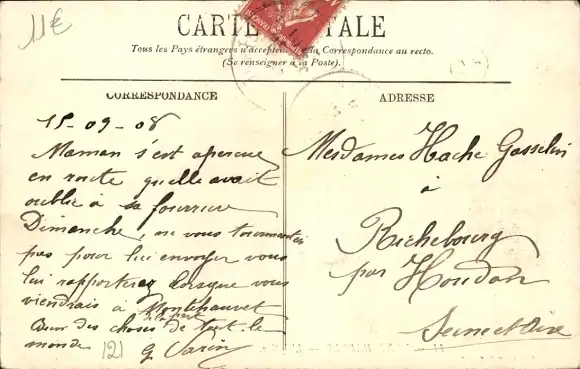 11€
CARTE POSTALE
Tous les Pays étrangers n'acceptent pas la Correspondance au recto.
(Se renseigner à la Poste).
CORRESPONDANCE
ADRESSE
15-09-08
Maman s'est aperçue
en route quelle avait
oublié à sa fourrure
Dimanche, ne vous tourmentez
pas pour lui envoyer vous
lui rapporterez lorsque vous
viendrais à Montchauvet
Bien des choses de la part de tout le
monde
G. Varin
121
Mesdames Hache Gosselin
à
Richebourg
par Houdan
Seine et Oise